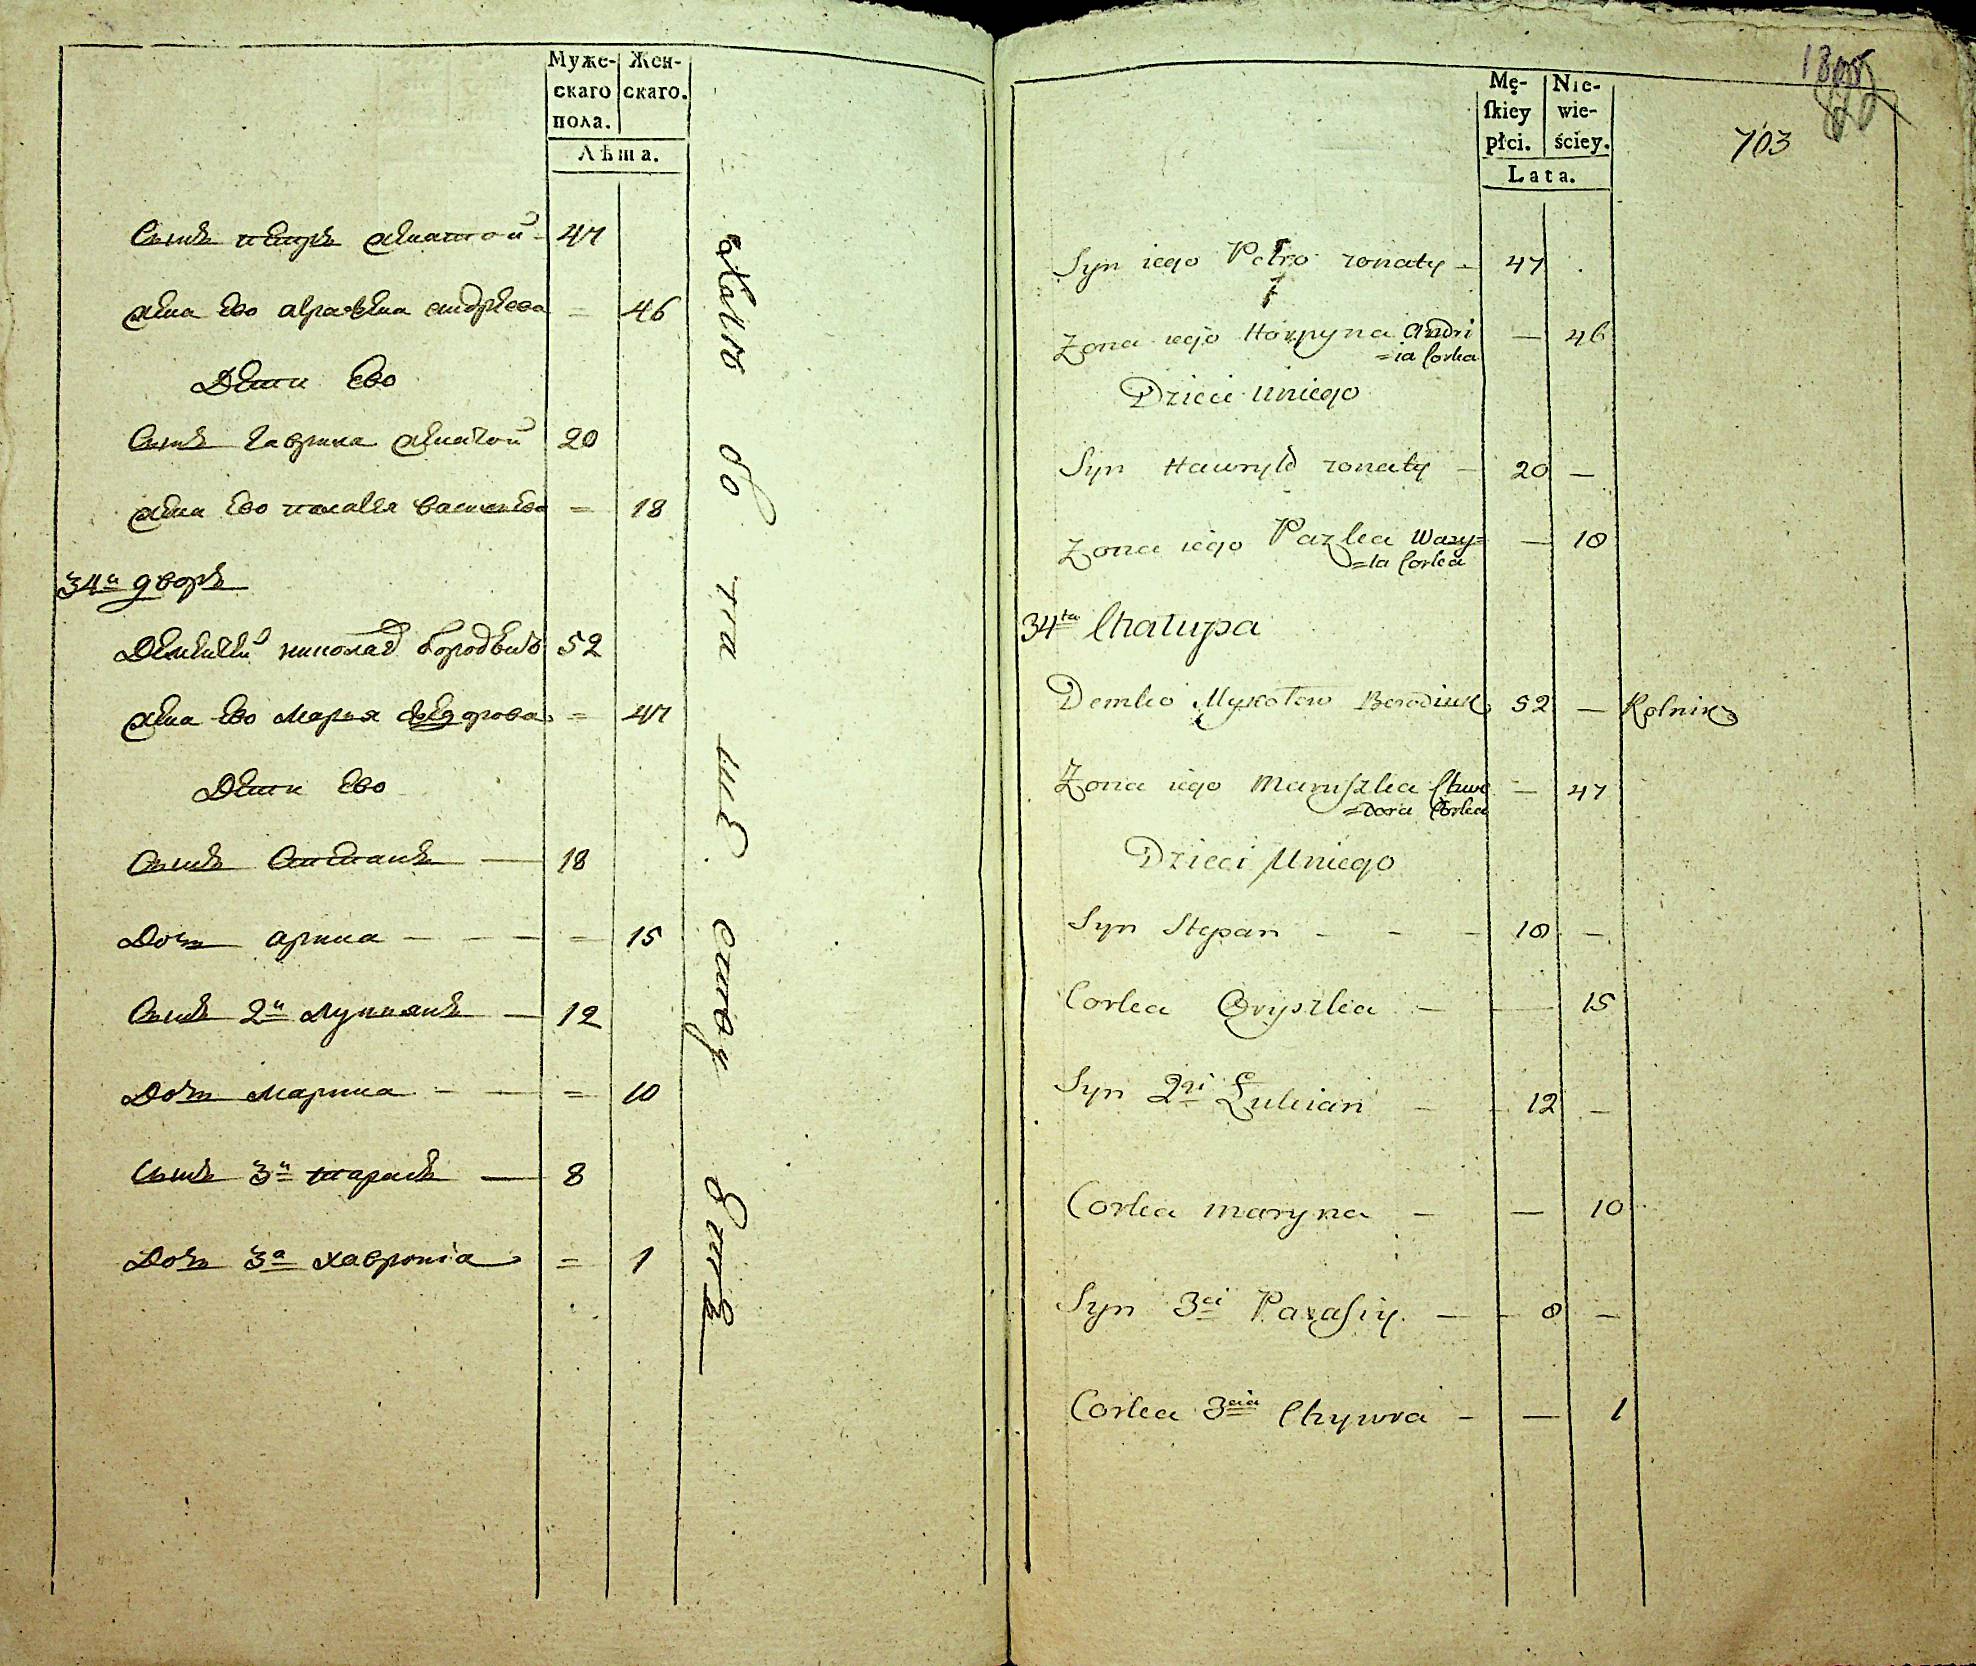 Муже-
скаго
пола.
Жен-
скаго.
Лѣта.
Сынъ петръ женатой 47
жена Ево Аграфена андрѣева = 46
Дети Ево
Сынъ Гаврила женатой 20
жена Ево пелагѣя васильева = 18
34й дворъ
Деменътей николаев бородѣнко 52
жена Ево Марья федорова = 47
Дети Ево
Сынъ Степанъ — 18
Дочь арина — — — = 15
Сынъ 2й лукианъ — 12
Дочь Марина — — = 10
Сынъ 3й тарасъ — 8
Дочь 3а хавронiа = 1
Mę-
ſkiey
płci.
Nie-
wie-
ściey.
Lata.
703
Syn iego Petro zonaty — 47
Zona iego Horpyna Andri — 46
=ia Corka
Dzieci Uniego
Syn Hawryło zonaty — 20 —
Zona iego Pazka Wasy= — 18
=la Corka
34ta Chałupa
Demko Mykołow Borodiuk 52 — Rolnik
Zona iego Maruszka Chwe — 47
=dora Corka
Dzieci Uniego
Syn Stepan - - - 18 —
Corka Oryszka — — 15
Syn 2gi Łukian — - 12 —
Corka maryna — — 10
Syn 3ci Parasiy — - 8 —
Corka 3cia Chywra - — 1